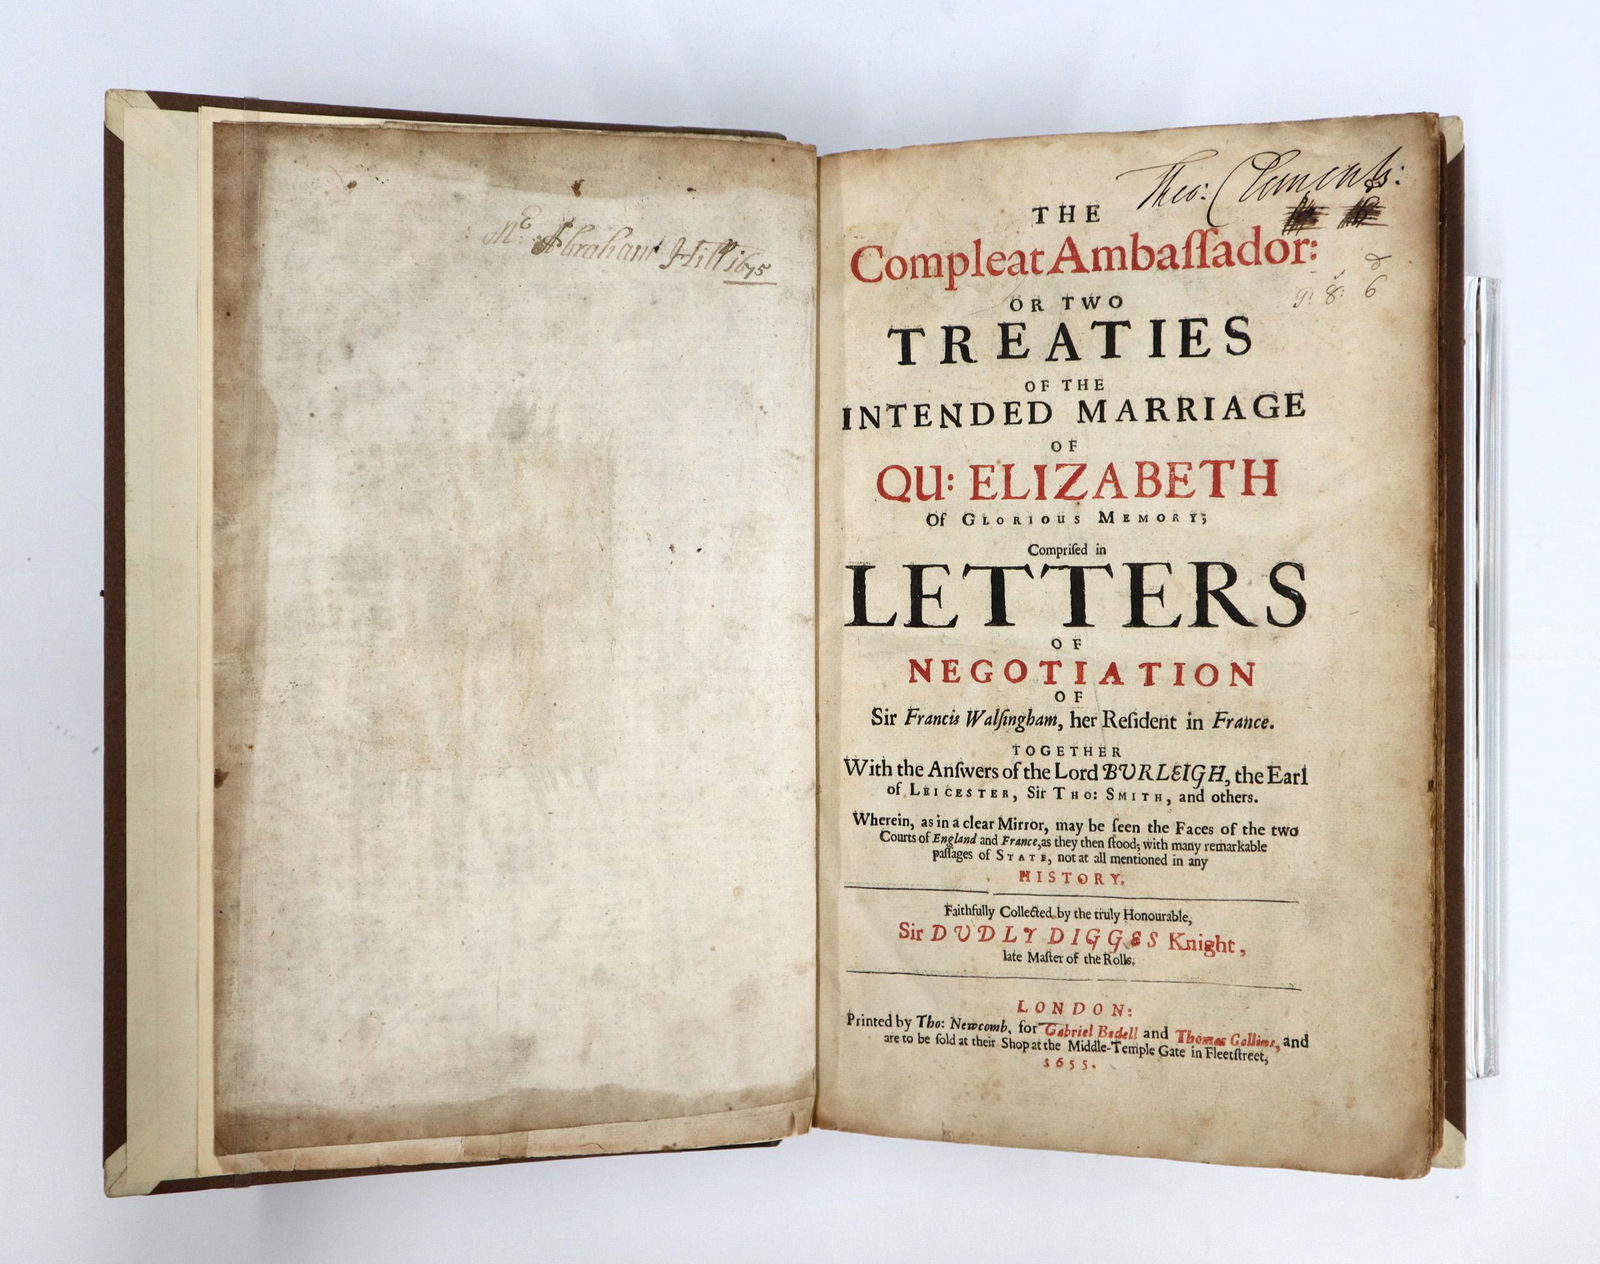 Mr Abraham Hill 1675
Theo: Clements:
THE
Compleat Ambaſſador:
OR TWO
TREATIES
OF THE
INTENDED MARRIAGE
OF
QU: ELIZABETH
Of GLORIOUS MEMORY;
Compriſed in
LETTERS
OF
NEGOTIATION
OF
Sir Francis Walſingham, her Reſident in France.
TOGETHER
With the Anſwers of the Lord BURLEIGH, the Earl
of LEICESTER, Sir THO: SMITH, and others.
Wherein, as in a clear Mirror, may be ſeen the Faces of the two
Courts of England and France, as they then ſtood; with many remarkable
paſſages of STATE, not at all mentioned in any
HISTORY.
Faithfully Collected by the truly Honourable,
Sir DUDLY DIGGES Knight,
late Maſter of the Rolls.
LONDON:
Printed by Tho: Newcomb, for Gabriel Bedell and Thomas Collins, and
are to be ſold at their Shop at the Middle-Temple Gate in Fleetſtreet,
1655.